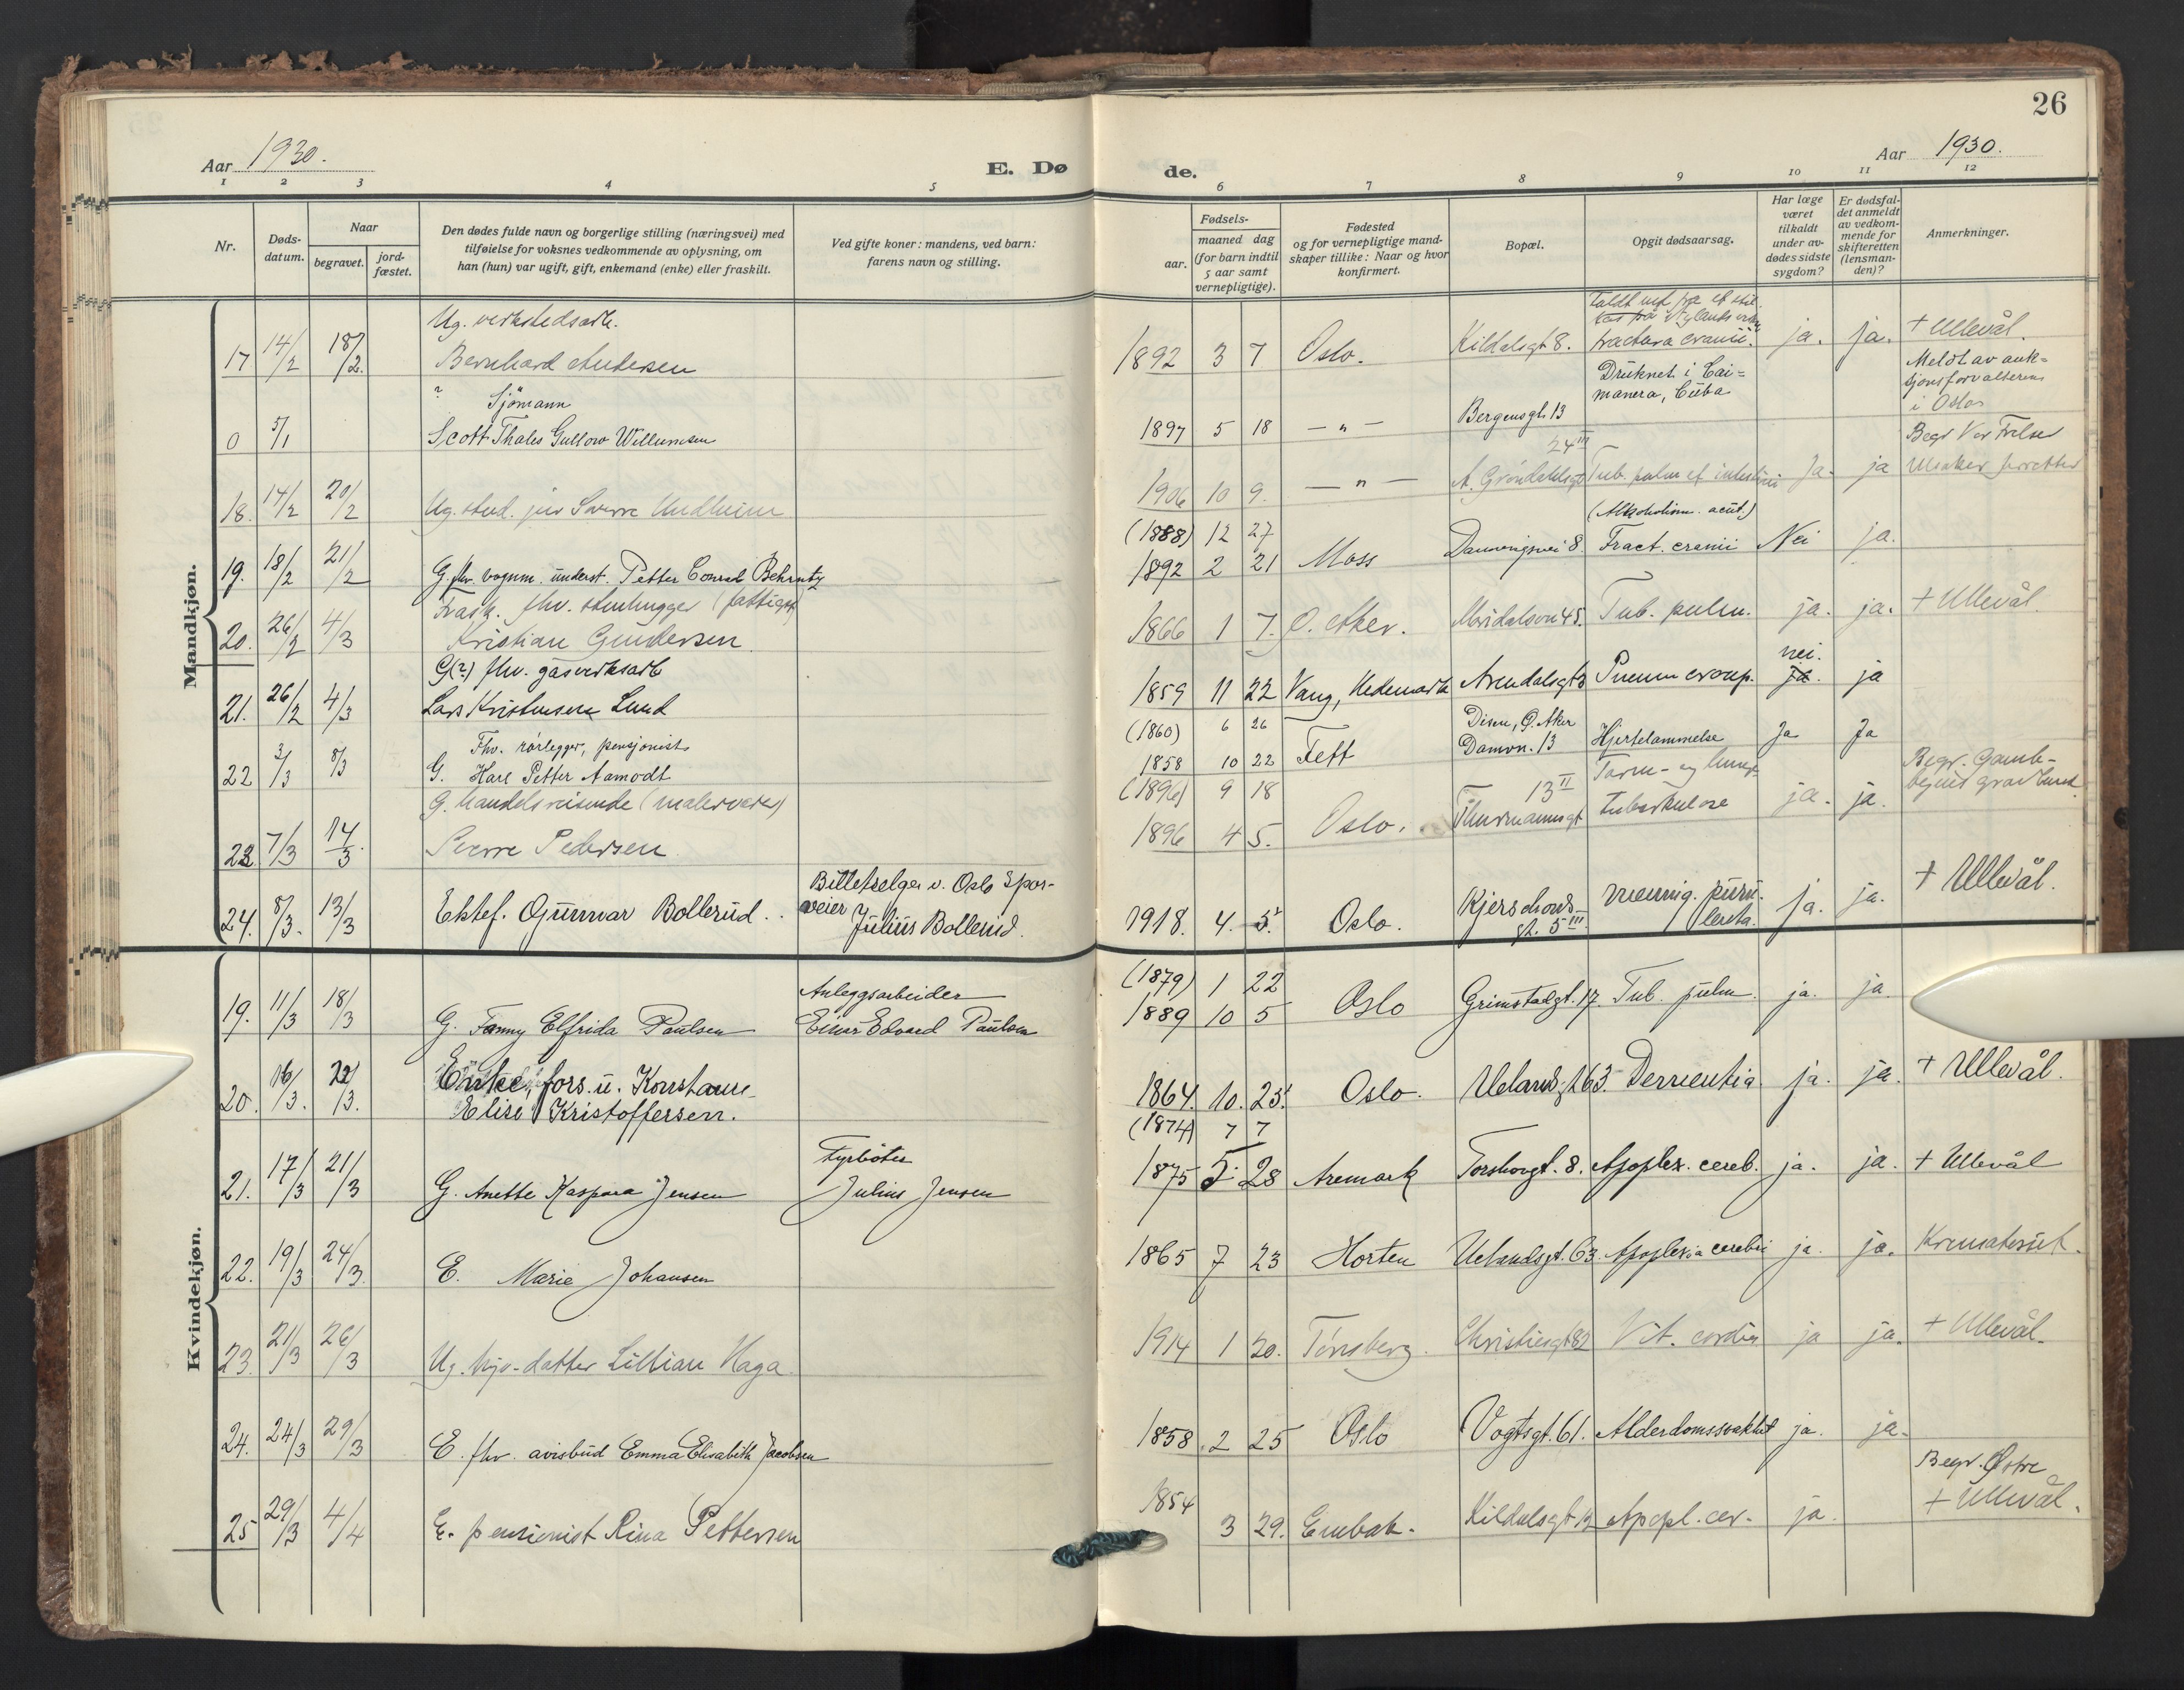 26
Aar 1930.
E. Dø
de.
Aar 1930.
1 2 3 4 5 6 7 8 9 10 11 12
Nr.
Døds-
datum.
Naar
begravet.
jord-
fæstet.
Den dødes fulde navn og borgerlige stilling (næringsvei) med
tilføielse for voksnes vedkommende av oplysning, om
han (hun) var ugift, gift, enkemand (enke) eller fraskilt.
Ved gifte koner: mandens, ved barn:
farens navn og stilling.
Fødsels-
aar.
maaned dag
(for barn indtil
5 aar samt
vernepligtige).
Fødested
og for vernepligtige mand-
skaper tillike: Naar og hvor
konfirmert.
Bopæl.
Opgit dødsaarsag.
Har læge
været
tilkaldt
under av-
dødes sidste
sygdom?
Er dødsfal-
det anmeldt
av vedkom-
mende for
skifteretten
(lensman-
den)?
Anmerkninger.
Mandkjøn.
Ug. verkstedsarb.
17 14/2 18/2. Bernhard Andersen 1892 3 7 Oslo. Kildalsgt 8. fractura cranii. ja. ja. + Ullevål.
? Sjømann
0 5/1 Scott Thales Gullow Willumsen 1897 5 18 — " — Bergensgt. 13
Druknet i Cai=
manera, Cuba
Meldt av auk=
sjonsforvalteren
i Oslo
18. 14/2 20/2 Ug. stud. jur Sverre Undheim 1906 10 9. — " — A. Grøndahlsgt 24 III Tub. pulm et intestini Ja. ja
Begr Vor Frelser
(1888) 12 27
(Alkoholism. acut.)
19. 18/2 21/2 G. fhv. vognm. underst. Petter Conrad Behrntz 1892 2 21 Moss 8. Fract. cranii Nei ja.
Frask. fhv. stenhugger
20. 26/2 4/3 Kristian Gundersen 1866 1 7. Ø. Aker. Maridalsvn 45. Tub. pulm. ja. ja. + Ullevål.
G(?) fhv. gasverksarb
21. 26/2 4/3 Lars Kristensen Lund 1859 11 22 Vang, Hedemark Arendalsgt 3 Pneum croup. nei. ja. ja
(1860) 6 26
Fhv. rørlegger, pensjonist
22 3/3 8/3 G. Hare Petter Aamodt 1858 10 22 Fett Disen, Ø. Aker
Damvn. 13 Hjertelammelse Ja Ja
(1896) 9 18
G. handelsreisende (malervarer)
23. 7/3 14/3. Sverre Pedersen 1896 4 5. Oslo. Thurmannsgt 13 II Tarm- og lunge
tuberkulose ja. ja.
Begr. Gamle-
byens gravlund
24. 8/3. 13/3 Ektef. Gunnar Bollerud. Billetselger v. Oslo Spor-
veier Julius Bollerud. 1918. 4. 5. Oslo. Kjerschows-
gt. 5 III. mening. puru-
lenta. ja. ja. + Ullevål.
Kvindekjøn.
(1879) 1 22
Anleggsarbeider
19. 11/3 18/3 G. Fanny Elfrida Paulsen Einar Edvard Paulsen 1889 10 5 Oslo Grimstadgt. 17. Tub. pulm. ja. ja.
20. 16/3. 22/3. Enke, fors. u. Konstanse
Elise Kristoffersen. 1864. 10. 25. Oslo. Uelandsgt 63. Dementia ja. ja. + Ullevål.
(1874) 7 7
Fyrbøter
21. 17/3 21/3 G. Anette Kaspara Jensen Julius Jensen 1875 5. 28 Aremark Torshovgt. 8. Apoplex. cereb. ja. ja. + Ullevål
22. 19/3 24/3. E. Marie Johansen 1865 7 23 Horten Uelandsgt. 63 Apoplexia cerebri ja. ja. Krematoriet.
23. 21/3 26/3 Ug. hjv. datter Lillian Haga 1914 1 20. Tønsberg. Christiesgt 32 Vit. cordis ja ja. + Ullevål.
24. 24/3 29/3 E. fhv. avisbud Emma Elisabeth Jacobsen 1858. 2 25 Oslo Vogtsgt. 61. Alderdomssvakhet ja. ja.
25 29/3 4/4 E. pensionist Rina Pettersen 1854 3 29. Enebak. Kildalsgt 12 Apopl. cer. ja.
Begr. Østre
+ Ullevål.